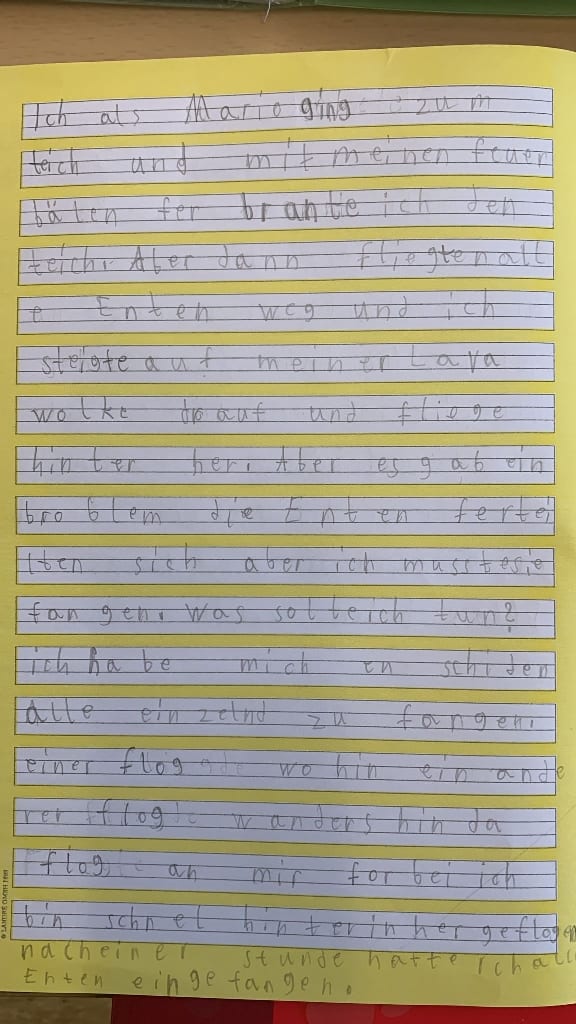 Ich als Mario ging zum
teich und mit meinen feuer
bälen fer brante ich den
teich. Aber dann fliegten all
e Enten weg und ich
steigte auf meiner Lava
wolke drauf und fliege
hinter her. Aber es gab ein
broblem die Enten fertei
lten sich aber ich musste sie
fangen. was sollte ich tun?
ich habe mich en schiden
alle einzelnd zu fangen.
einer flog wo hin ein ande
rer flog wanders hin da
flog an mir for bei ich
bin schnel hinter in her geflogen
nach einer stunde hatte ich alle
Enten eingefangen.